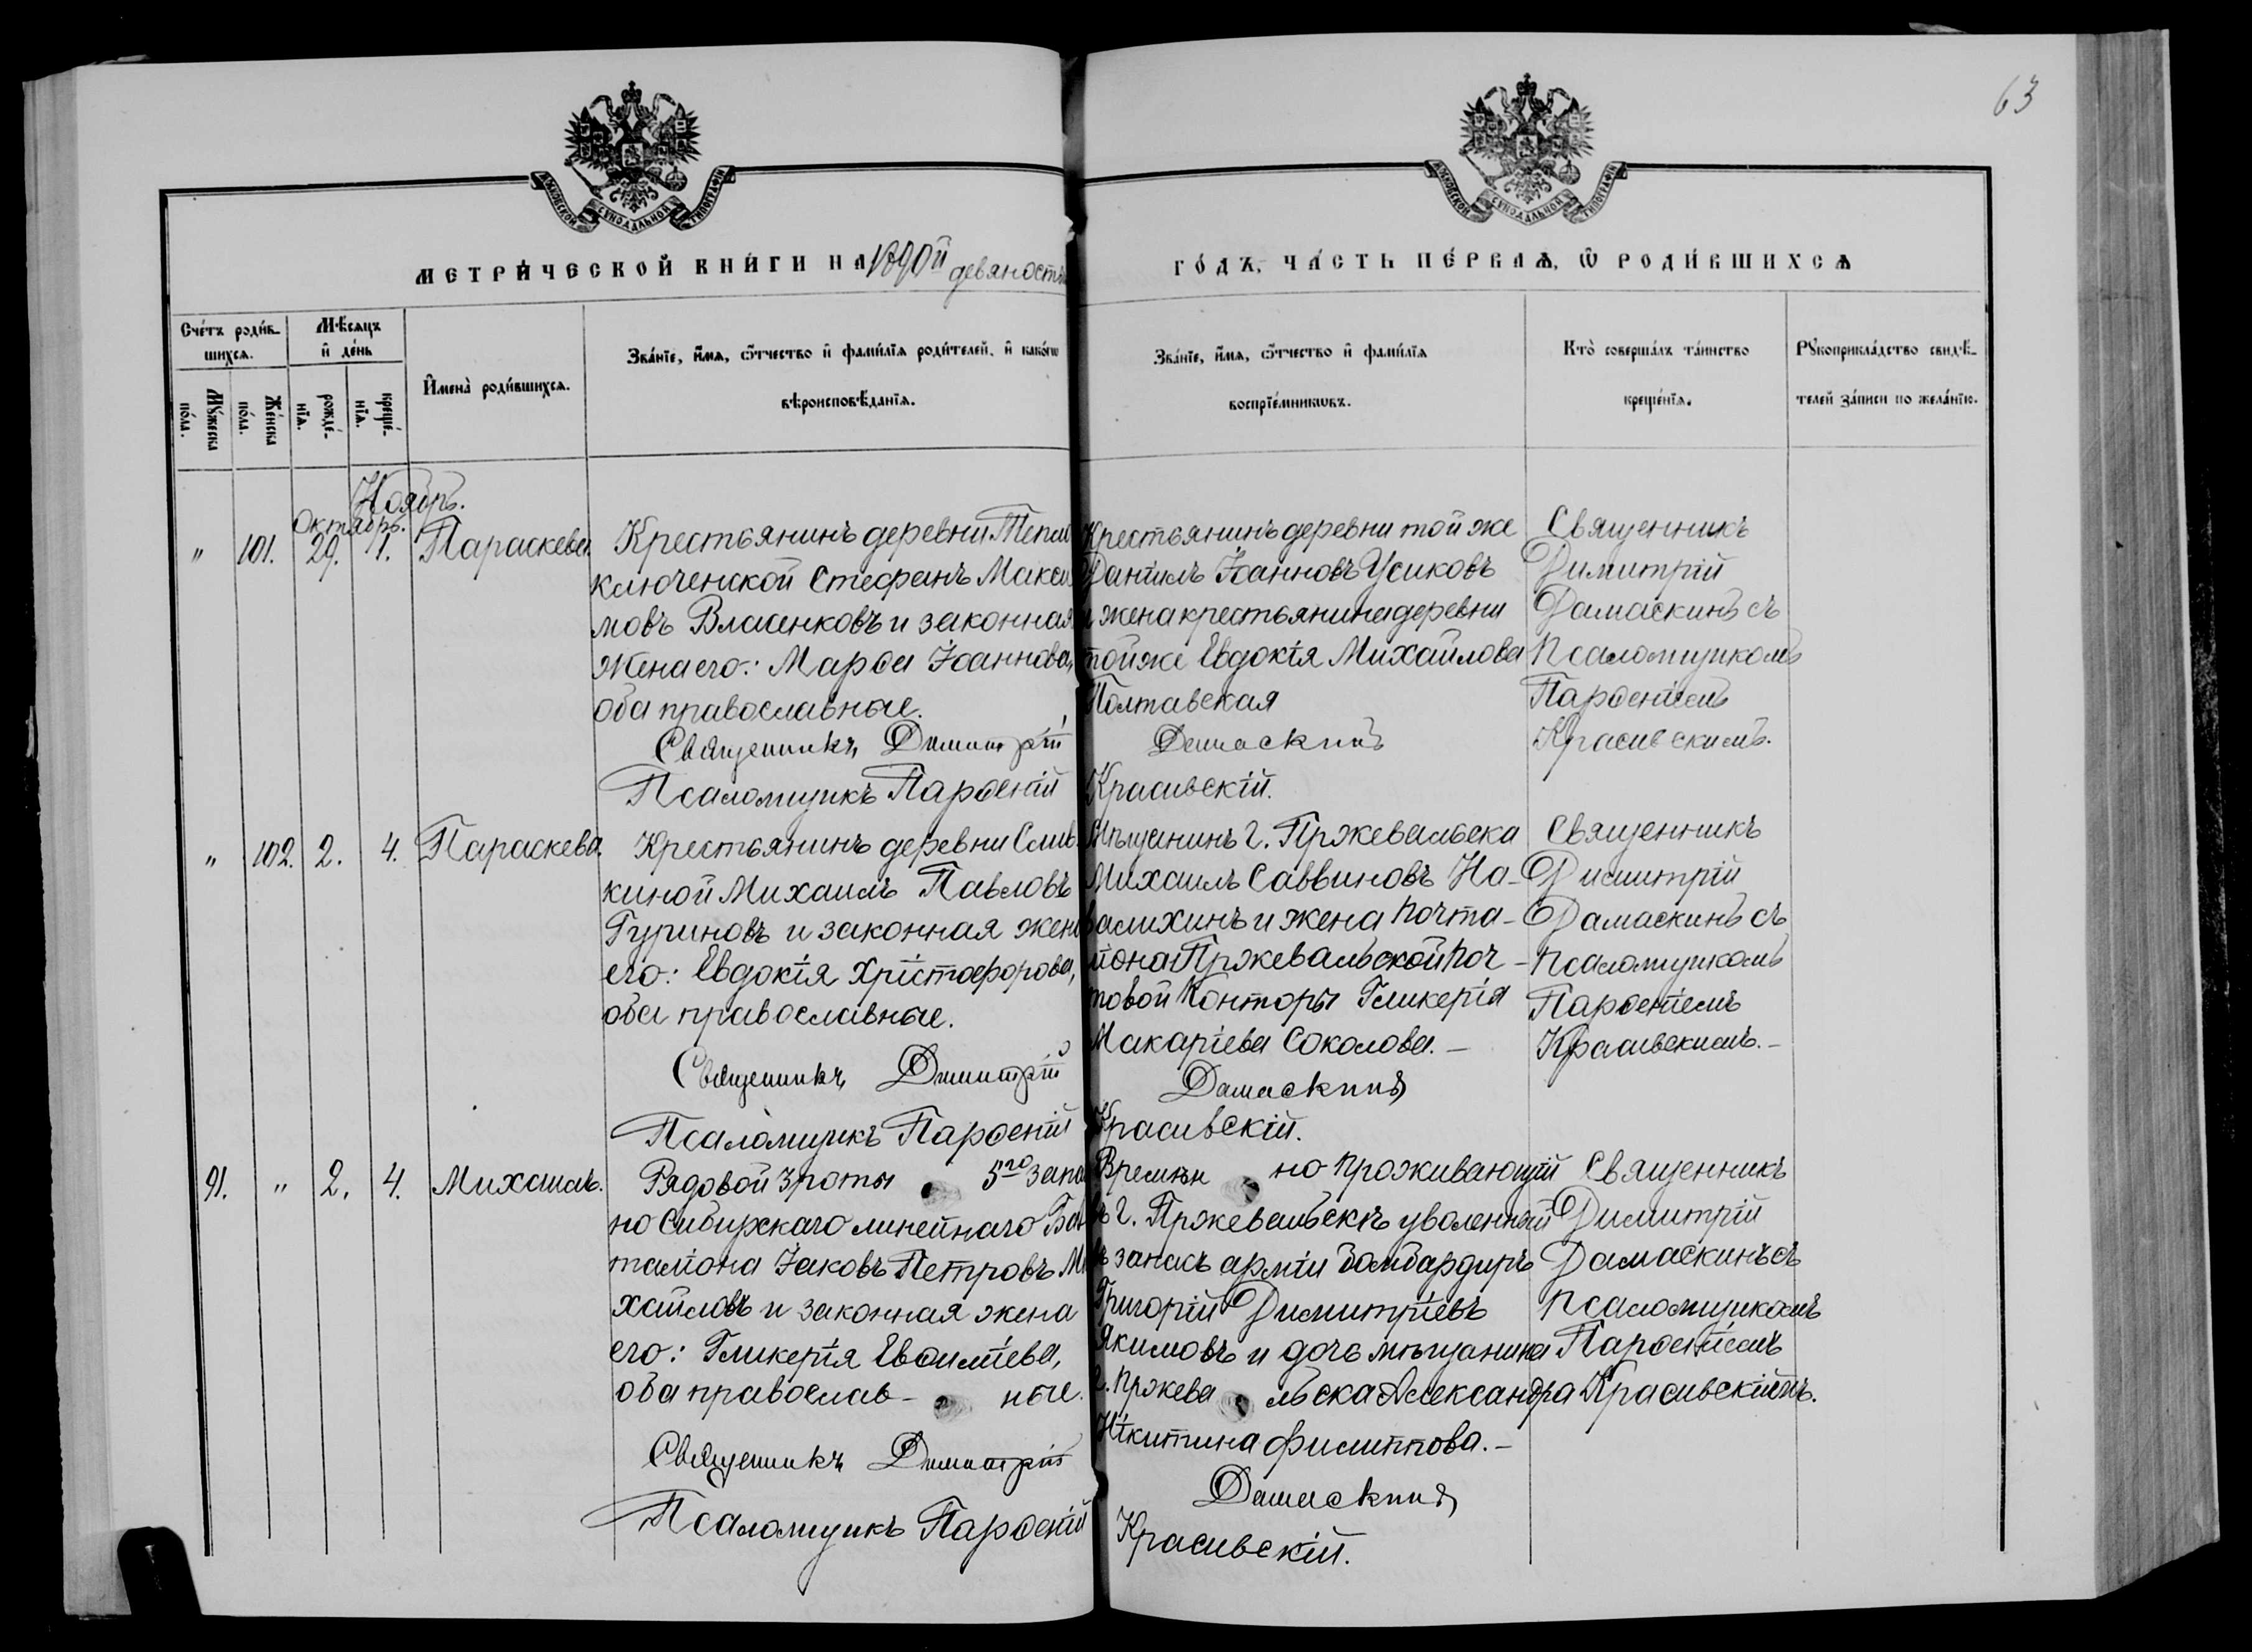 63
МОСКОВСКОЙ СѴНОДАЛЬНОЙ ТИПОГРАФІИ
МОСКОВСКОЙ СѴНОДАЛЬНОЙ ТИПОГРАФІИ
МЕТРИ́ЧЕСКОЙ КНИ́ГИ НА 1890й девяносты
ГО́ДЪ, ЧА́СТЬ ПЕ́РВАѦ, Ѡ РОДИ́ВШИХСѦ
Сче́тъ роди́в-
шихсѧ.
Мꙋ́жеска
по́ла.
Же́нска
по́ла.
Мѣ́сѧцъ
и҆ де́нь
рожде́-
нїѧ.
креще́-
нїѧ.
И҆мена̀ роди́вшихсѧ.
Зва́нїе, и҆́мѧ, ѻ҆́тчество и҆ фами́лїѧ роди́телей, и҆ како́гѡ
вѣроисповѣ́данїѧ.
Зва́нїе, и҆́мѧ, ѻ҆́тчество и҆ фами́лїѧ
воспрїе́мникѡвъ.
Кто̀ соверша́лъ та́инство
креще́нїѧ.
Рꙋкоприкла́дство свидѣ́-
телей за́писи по жела́нїю.
Ноябрь.
Октябрь.
" 101. 29. 1. Параскева
Крестьянинъ деревни Тепло
ключенской Стефанъ Макси
мовъ Власенковъ и законная
жена его: Марѳа Іоаннова,
оба православные.
Священникъ Димитрій
Псаломщикъ Парѳеній
Крестьянинъ деревни той же
Даніилъ Іоанновъ Усиковъ
и жена крестьянина деревни
той же Евдокія Михайлова
Полтавская
Дамаскинъ
Красивскій.
Священникъ
Димитрій
Дамаскинъ съ
Псаломщикомъ
Парѳеніемъ
Красивскимъ.
" 102. 2. 4. Параскева.
Крестьянинъ деревни Слив
киной Михаилъ Павловъ
Гуриновъ и законная жена
его: Евдокія Христофорова,
оба православные.
Священникъ Димитрій
Псаломщикъ Парѳеній
Мѣщанинъ г. Пржевальска
Михаилъ Саввиновъ На-
валихинъ и жена почта-
ліона Пржевальской поч-
товой Конторы Гликерія
Макаріева Соколова.-
Дамаскинъ
Красивскій.
Священникъ
Димитрій
Дамаскинъ съ
Псаломщикомъ
Парѳеніемъ
Красивскимъ.-
91. " 2. 4. Михаилъ.
Рядовой 3 роты 5го Запад
но Сибирскаго линейнаго Ба
таліона Іаковъ Петровъ Ми
хайловъ и законная жена
его: Гликерія Евѳиміева,
оба православ- ные.
Священникъ Димитрій
Псаломщикъ Парѳеній
Времѣн но проживающій
въ г. Пржевальскѣ уволенный
въ запасъ арміи бомбардиръ
Григорій Димитріевъ
Якимовъ и дочь мѣщанина
г. Пржева льска Александра
Нікитина Филиппова.-
Дамаскинъ
Красивскій.
Священникъ
Димитрій
Дамаскинъ съ
Псаломщикомъ
Парѳеніемъ
Красивскіимъ.